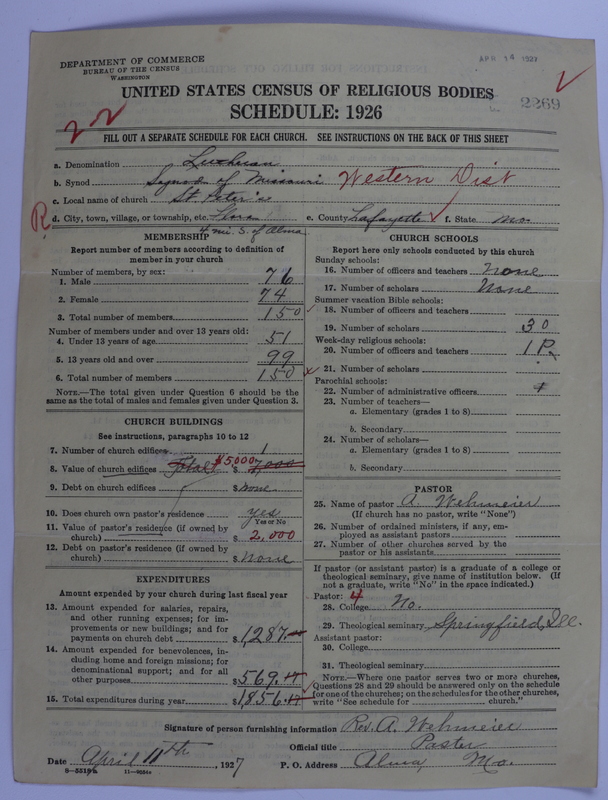 DEPARTMENT OF COMMERCE
BUREAU OF THE CENSUS
WASHINGTON
APR 14 1927
2269
22
UNITED STATES CENSUS OF RELIGIOUS BODIES
SCHEDULE: 1926
FILL OUT A SEPARATE SCHEDULE FOR EACH CHURCH. SEE INSTRUCTIONS ON THE BACK OF THIS SHEET
a. Denomination Lutheran
b. Synod Synod of Missouri Western Dist
c. Local name of church St. Peter's
R d. City, town, village, or township, etc. e. County Lafayette f. State Mo.
4 mi. S. of Alma
MEMBERSHIP
Report number of members according to definition of
member in your church
Number of members, by sex:
1. Male 76
2. Female 74
3. Total number of members 150
Number of members under and over 13 years old:
4. Under 13 years of age 51
5. 13 years old and over 99
6. Total number of members 150
NOTE.—The total given under Question 6 should be the
same as the total of males and females given under Question 3.
CHURCH BUILDINGS
See instructions, paragraphs 10 to 12
7. Number of church edifices 1
8. Value of church edifices Total $5000 $ 7,000
9. Debt on church edifices $ None
10. Does church own pastor's residence yes
Yes or No
11. Value of pastor's residence (if owned by
church) $ 2,000
12. Debt on pastor's residence (if owned by
church) $ None
EXPENDITURES
Amount expended by your church during last fiscal year
13. Amount expended for salaries, repairs,
and other running expenses; for im-
provements or new buildings; and for
payments on church debt $ 1,287.
14. Amount expended for benevolences, in-
cluding home and foreign missions; for
denominational support; and for all
other purposes $ 569.17
15. Total expenditures during year $ 1856.17
CHURCH SCHOOLS
Report here only schools conducted by this church
Sunday schools:
16. Number of officers and teachers None
17. Number of scholars None
Summer vacation Bible schools:
18. Number of officers and teachers
19. Number of scholars 30
Week-day religious schools:
20. Number of officers and teachers 1 P.
21. Number of scholars
Parochial schools:
22. Number of administrative officers
23. Number of teachers—
a. Elementary (grades 1 to 8)
b. Secondary
24. Number of scholars—
a. Elementary (grades 1 to 8)
b. Secondary
PASTOR
25. Name of pastor A. Wehmeier
(If church has no pastor, write "None")
26. Number of ordained ministers, if any, em-
ployed as assistant pastors
27. Number of other churches served by the
pastor or his assistants
If pastor (or assistant pastor) is a graduate of a college or
theological seminary, give name of institution below. (If
not a graduate, write "No" in the space indicated.)
Pastor: 4
28. College No.
29. Theological seminary Springfield, Ill.
Assistant pastor:
30. College
31. Theological seminary
NOTE.—Where one pastor serves two or more churches,
Questions 28 and 29 should be answered only on the schedule
for one of the churches; on the schedules for the other churches,
write "See schedule for church."
Signature of person furnishing information Rev. A. Wehmeier
Official title Pastor
Date April 11th, 1927 P. O. Address Alma, Mo.